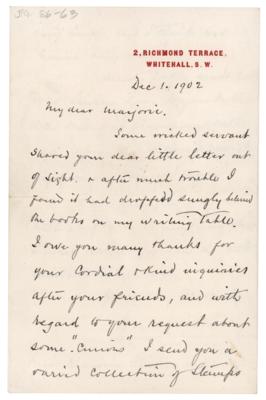 2, RICHMOND TERRACE.
WHITEHALL, S. W.
Dec 1. 1902
My dear Marjorie.
Some wicked servant
shoved your dear little letter out
of sight. & after much trouble I
found it had dropped snugly behind
the books on my writing table.
I owe you many thanks for
your cordial & kind inquiries
after your friends, and with
regard to your request about
some "Curios" I send you a
varied collection of Stamps